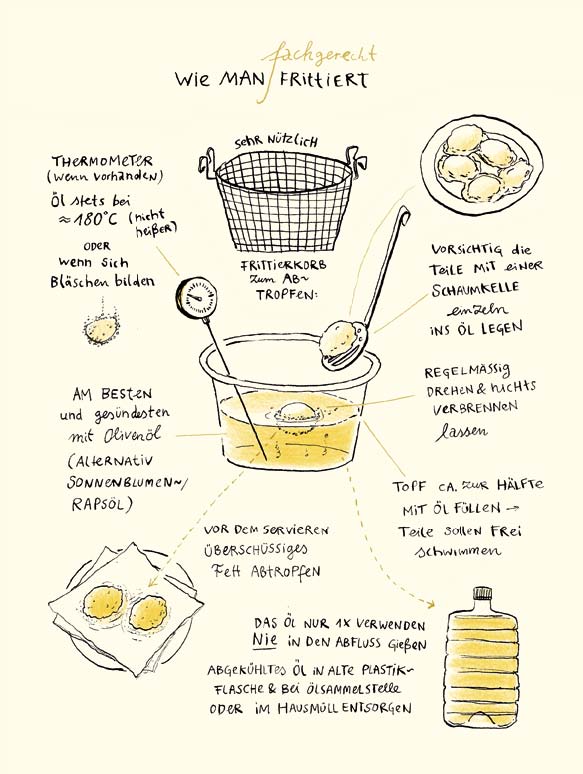 fachgerecht
WIE MAN FRITTIERT
SEHR NÜTZLICH
FRITTIERKORB
ZUM AB-
TROPFEN:
THERMOMETER
(wenn vorhanden)
Öl stets bei
≈180°C (nicht
heißer)
ODER
wenn sich
Bläschen bilden
VORSICHTIG die
TEILE MIT EINER
SCHAUMKELLE
einzeln
INS ÖL LEGEN
REGELMÄSSIG
DREHEN & NICHTS
VERBRENNEN
lassen
AM BESTEN
und gesündesten
mit Olivenöl
(ALTERNATIV
SONNENBLUMEN-/
RAPSÖL)
TOPF CA. ZUR HÄLFTE
MIT ÖL FÜLLEN →
Teile sollen FREI
schwimmen
VOR DEM SERVIEREN
ÜBERSCHÜSSIGES
Fett ABTROPFEN
DAS ÖL NUR 1X VERWENDEN
NIE IN DEN ABFLUSS GIEßEN
ABGEKÜHLTES ÖL IN ALTE PLASTIK-
FLASCHE & BEI ÖLSAMMELSTELLE
ODER IM HAUSMÜLL ENTSORGEN